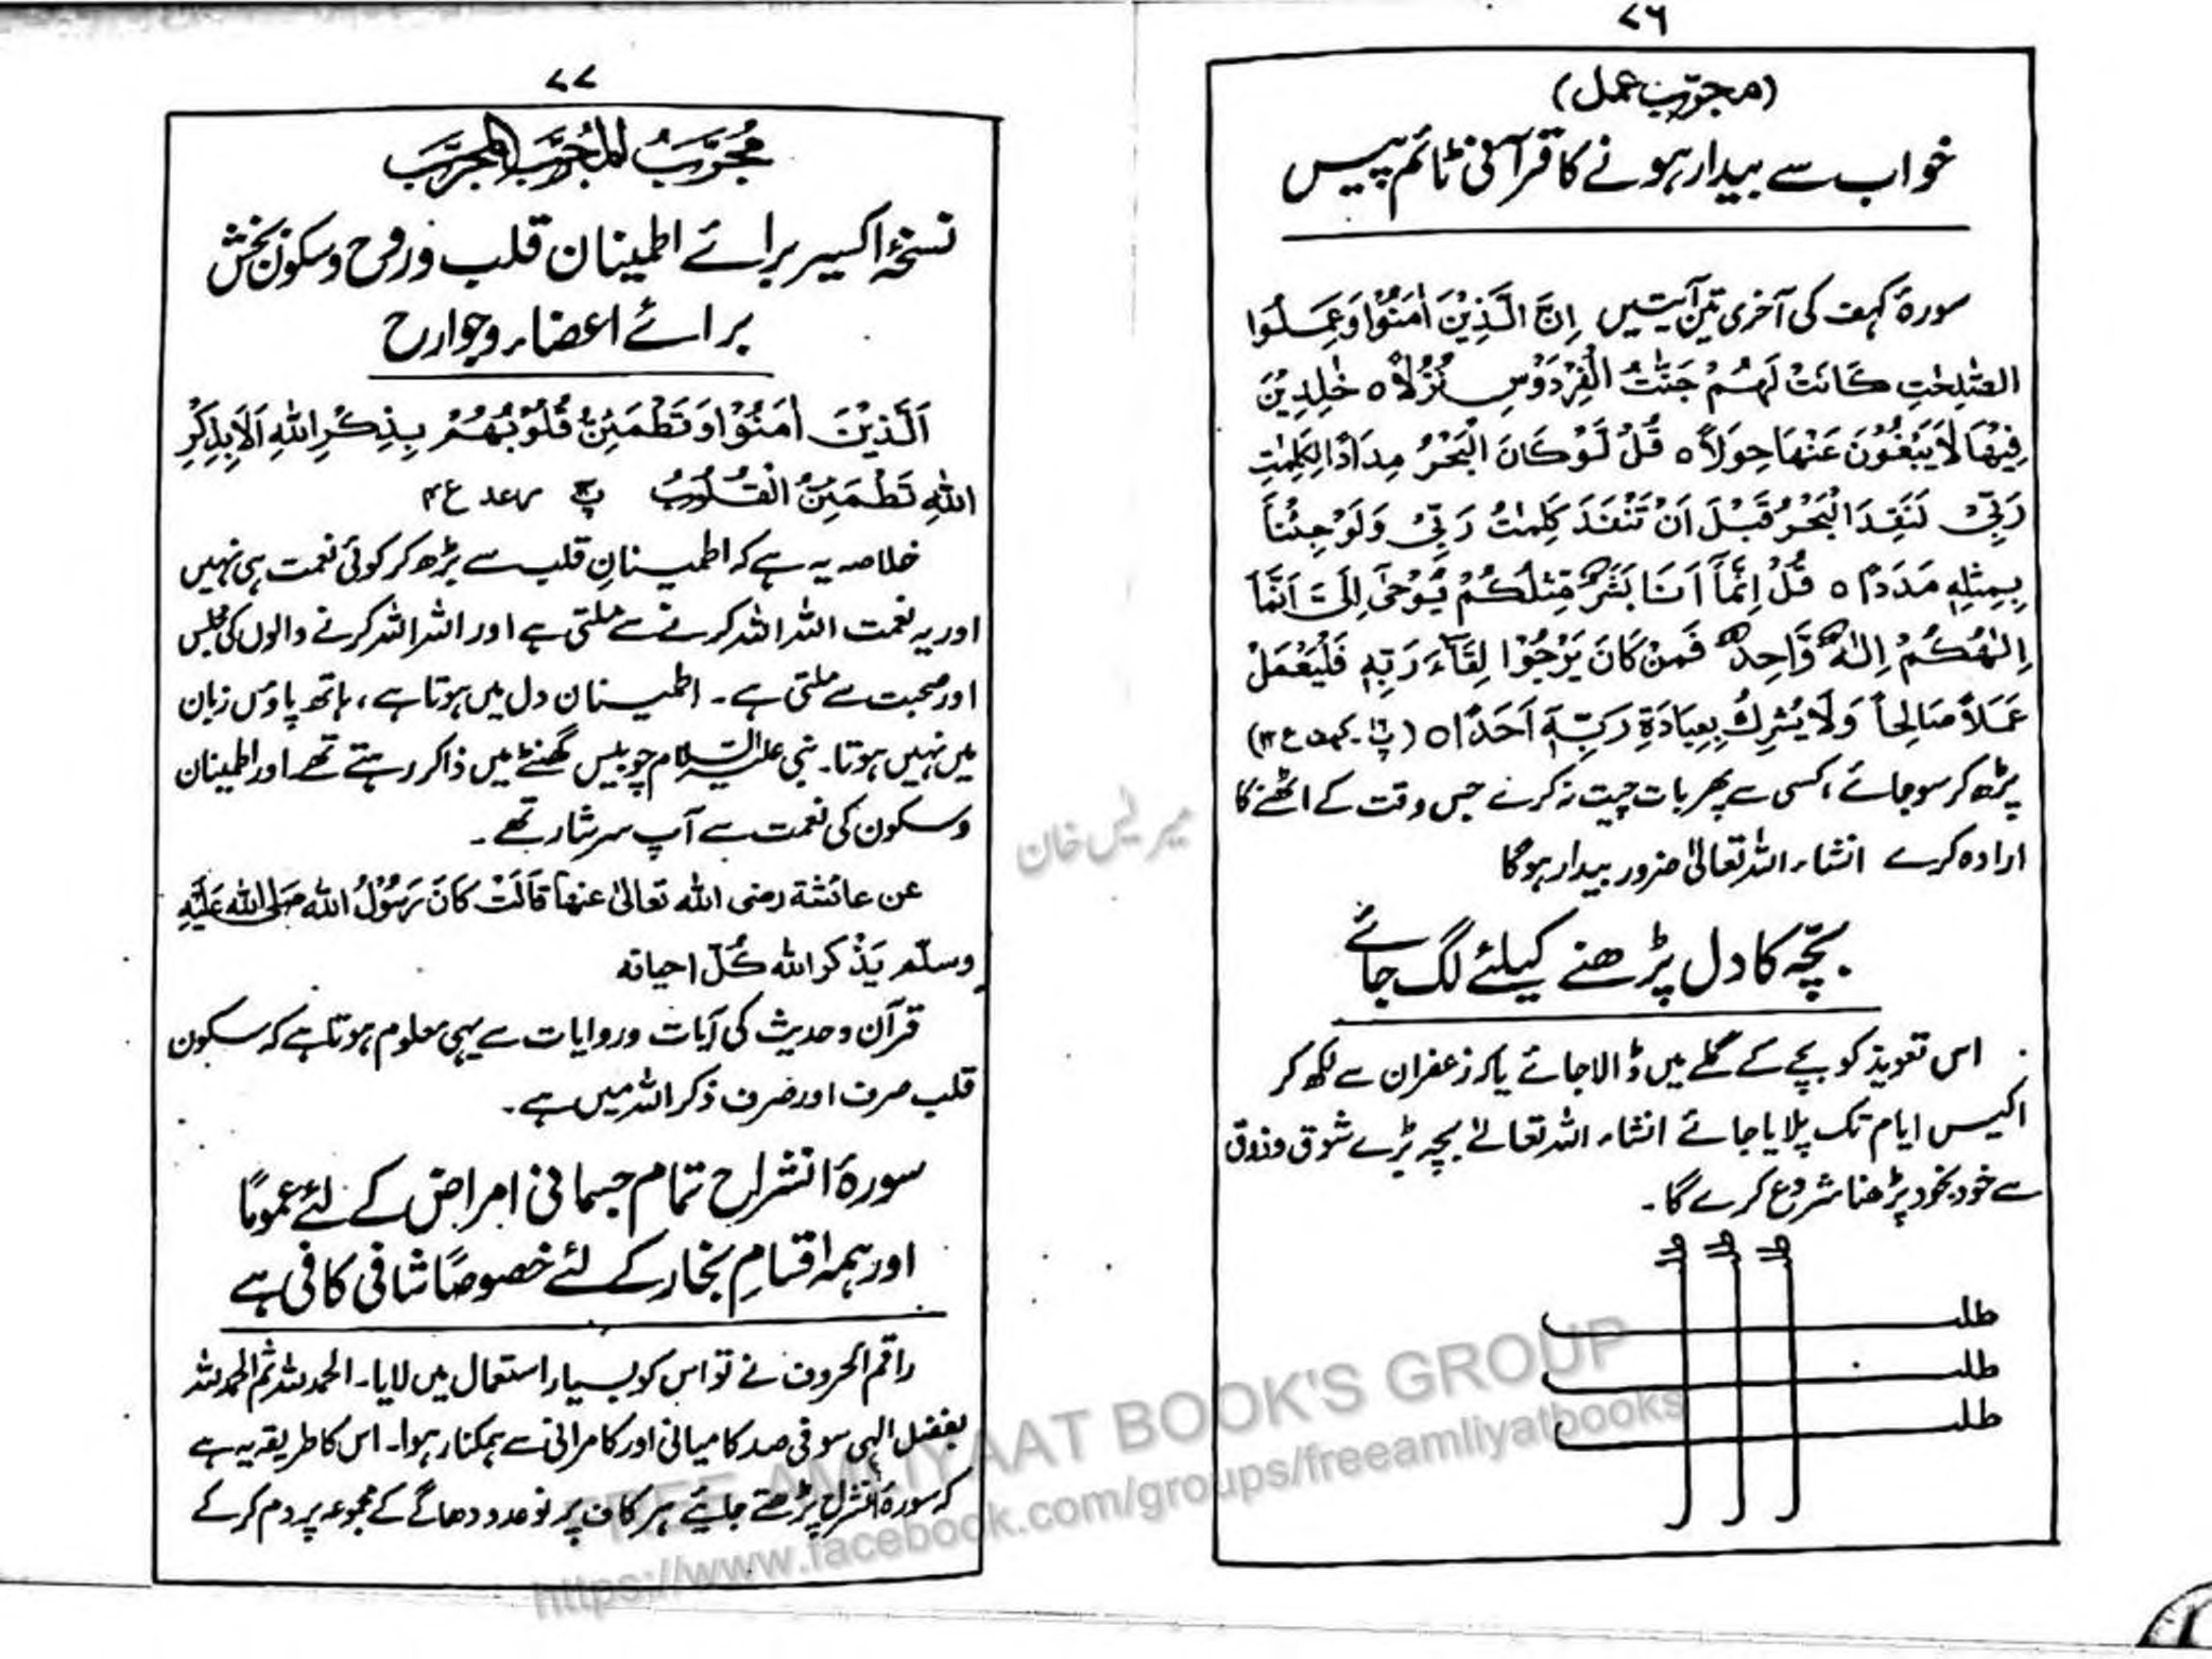 ۷۶
(مجرب عمل)
خواب سے بیدار ہونے کا قرآنی ٹائم پیس
سورۂ کہف کی آخری تین آیتیں اِنَّ الَّذِیْنَ اٰمَنُوْا وَعَمِلُوا
الصّٰلِحٰتِ کَانَتْ لَهُمْ جَنّٰتُ الْفِرْدَوْسِ نُزُلًا ۝ خٰلِدِیْنَ
فِیْهَا لَا یَبْغُوْنَ عَنْهَا حِوَلًا ۝ قُلْ لَّوْ کَانَ الْبَحْرُ مِدَادًا لِّکَلِمٰتِ
رَبِّیْ لَنَفِدَ الْبَحْرُ قَبْلَ اَنْ تَنْفَدَ کَلِمٰتُ رَبِّیْ وَلَوْ جِئْنَا
بِمِثْلِهٖ مَدَدًا ۝ قُلْ اِنَّمَآ اَنَا بَشَرٌ مِّثْلُکُمْ یُوْحٰٓی اِلَیَّ اَنَّمَآ
اِلٰهُکُمْ اِلٰهٌ وَّاحِدٌ فَمَنْ کَانَ یَرْجُوْا لِقَآءَ رَبِّهٖ فَلْیَعْمَلْ
عَمَلًا صَالِحًا وَّلَا یُشْرِکْ بِعِبَادَةِ رَبِّهٖٓ اَحَدًا ۝ (پ - کہف ع ۱۲)
پڑھ کر سو جائے، کسی سے پھر بات چیت نہ کرے جس وقت کے اٹھنے کا
ارادہ کرے انشاء اللہ تعالیٰ ضرور بیدار ہوگا
بچّہ کا دل پڑھنے کیلئے لگ جائے
اس تعویذ کو بچے کے گلے میں ڈالا جائے یا کہ زعفران سے لکھ کر
اکیس ایام تک پلایا جائے انشاء اللہ تعالےٰ بچہ بڑے شوق و ذوق
سے خود بخود پڑھنا شروع کرے گا۔
طلب
طلب
طلب
۷۷
مُجَرَّبُ المُجَرَّبُ المُجَرَّب
نسخۂ اکسیر برائے اطمینان قلب و روح و سکون بخش
برائے اعضاء و جوارح
اَلَّذِیْنَ اٰمَنُوْا وَتَطْمَئِنُّ قُلُوْبُهُمْ بِذِکْرِ اللّٰهِ اَلَا بِذِکْرِ
اللّٰهِ تَطْمَئِنُّ الْقُلُوْبُ پ رعد ع ۴
خلاصہ یہ ہے کہ اطمینانِ قلب سے بڑھ کر کوئی نعمت ہی نہیں
اور یہ نعمت اللہ اللہ کرنے سے ملتی ہے اور اللہ اللہ کرنے والوں کی مجلس
اور صحبت سے ملتی ہے۔ اطمینان دل میں ہوتا ہے، ہاتھ پاؤں زبان
میں نہیں ہوتا۔ نبی علیہ السلام چوبیس گھنٹے میں ذاکر رہتے تھے اور اطمینان
و سکون کی نعمت سے آپ سرشار تھے۔
عن عائشة رضی الله تعالیٰ عنها قَالَتْ کَانَ رَسُوْلُ الله صَلی الله عَلَیْهِ
وسلّم یَذْکر الله کُلّ احیانه
قرآن و حدیث کی آیات و روایات سے یہی معلوم ہوتا ہے کہ سکون
قلب صرف اور صرف ذکر اللہ میں ہے۔
سورۂ انشراح تمام جسمانی امراض کے لئے عموماً
اور ہمہ اقسامِ بخار کے لئے خصوصاً شافی کافی ہے
راقم الحروف نے تو اس کو بسیار استعمال میں لایا۔ الحمد للہ ثم الحمد للہ
بفضل الٰہی سو فی صد کامیابی اور کامرانی سے ہمکنار ہوا۔ اس کا طریقہ یہ ہے
کہ سورۂ انشراح پڑھتے جائیے ہر کاف پر نو عدد دھاگے کے مجموعہ پر دم کر کے
FREE AMLIYAAT BOOK'S GROUP
https://www.facebook.com/groups/freeamliyatbooks